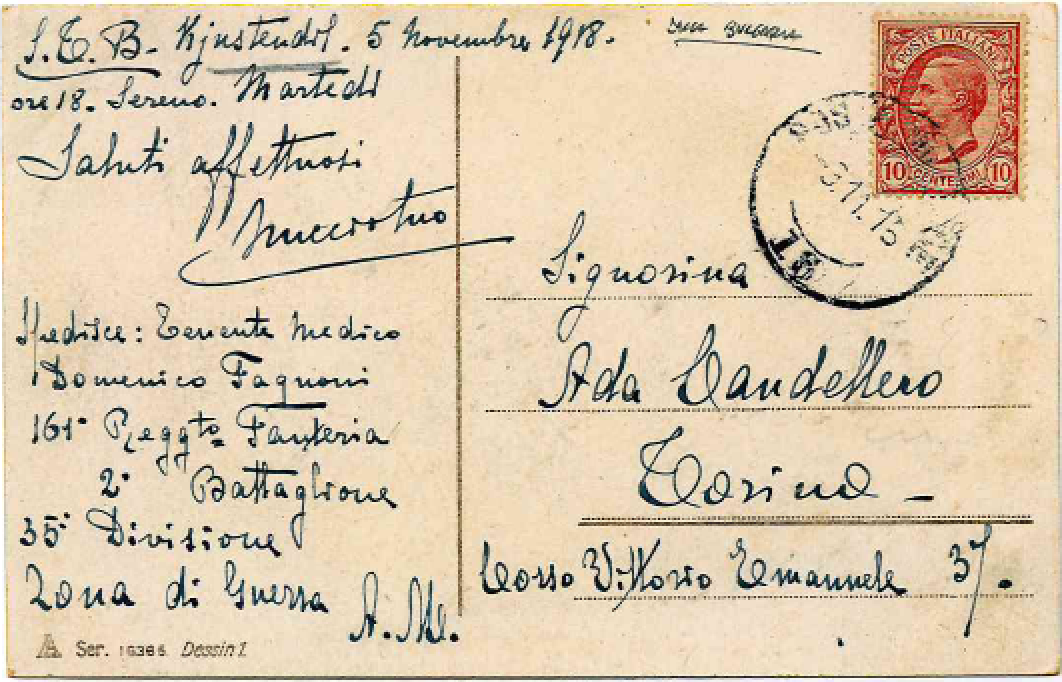 S.E.B. Kjustendil. 5 Novembre 1918.
ore 18. Sereno. Martedì
Saluti affettuosi
Spedisce: Tenente Medico
Domenico Fagnoni
161° Reggto Fanteria
2° Battaglione
35° Divisione
Zona di Guerra
A. M.
Ser. 16386. Dessin 1.
POSTE ITALIANE
10 CENTESIMI 10
Signorina
Ada Candellero
Torino
Corso Vittorio Emanuele 37.